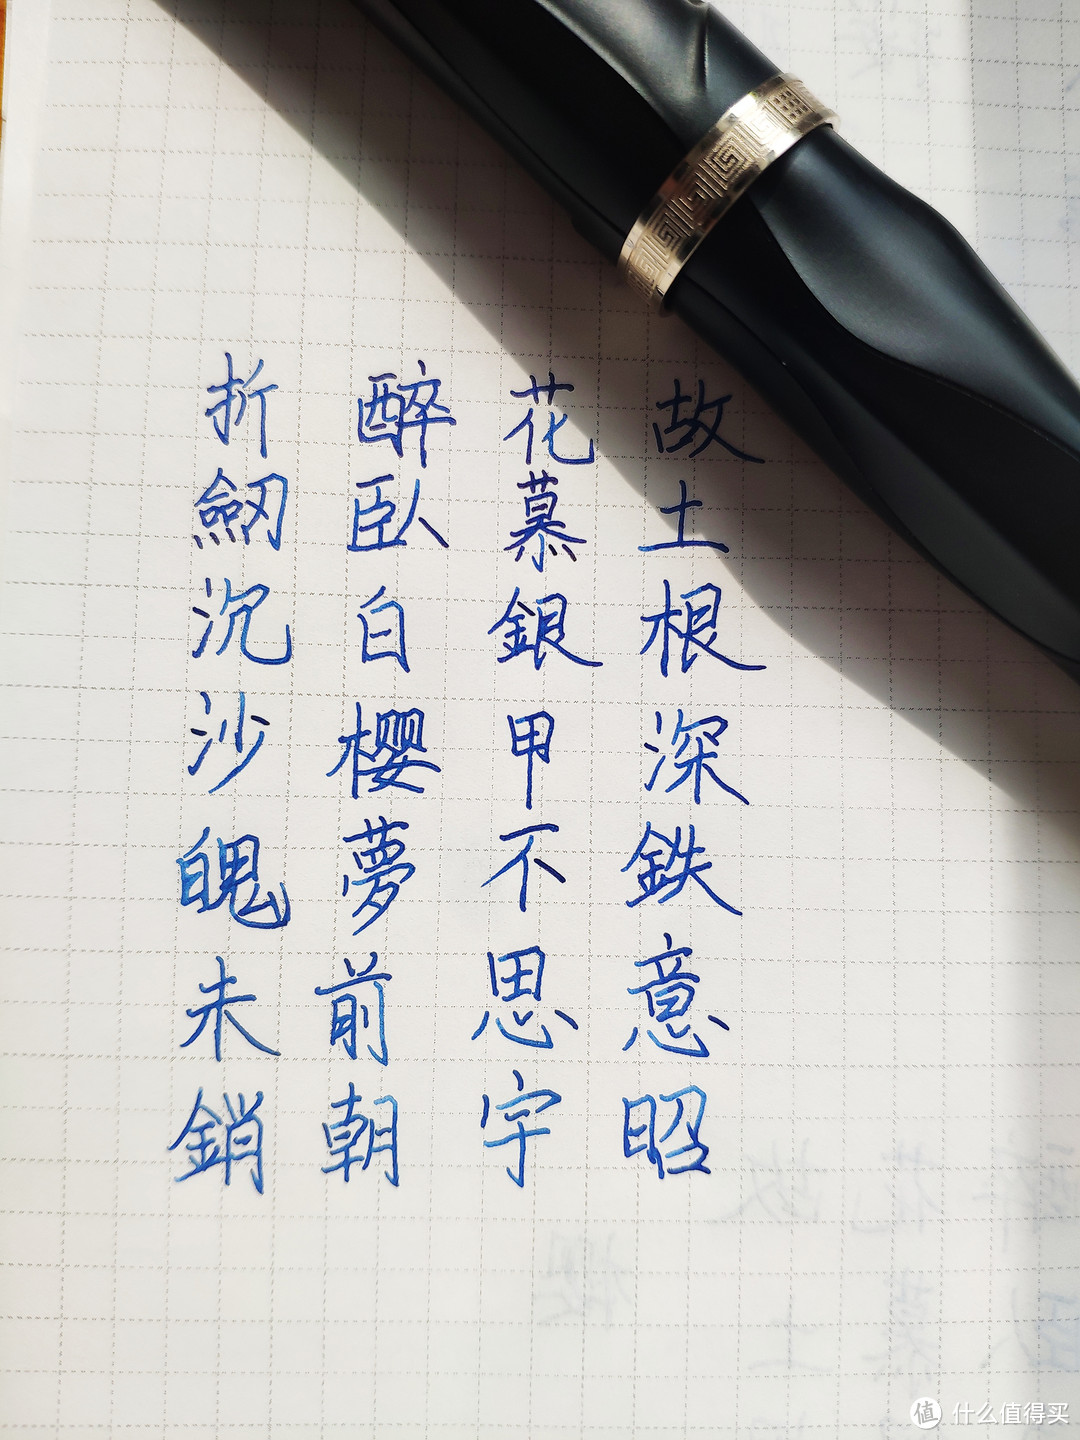 故土根深鉄意昭
花慕銀甲不思宇
醉臥白櫻夢前朝
折劒沉沙魄未銷
值 什么值得买